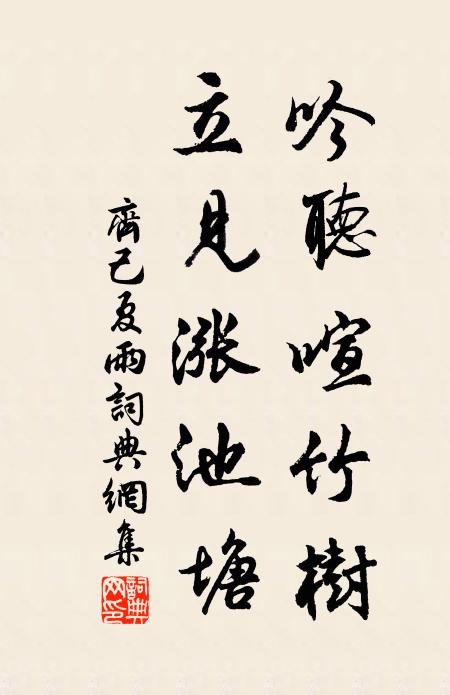 吟聽喧竹樹
立見漲池塘
齊己夏雨詞典網集
詞典網印